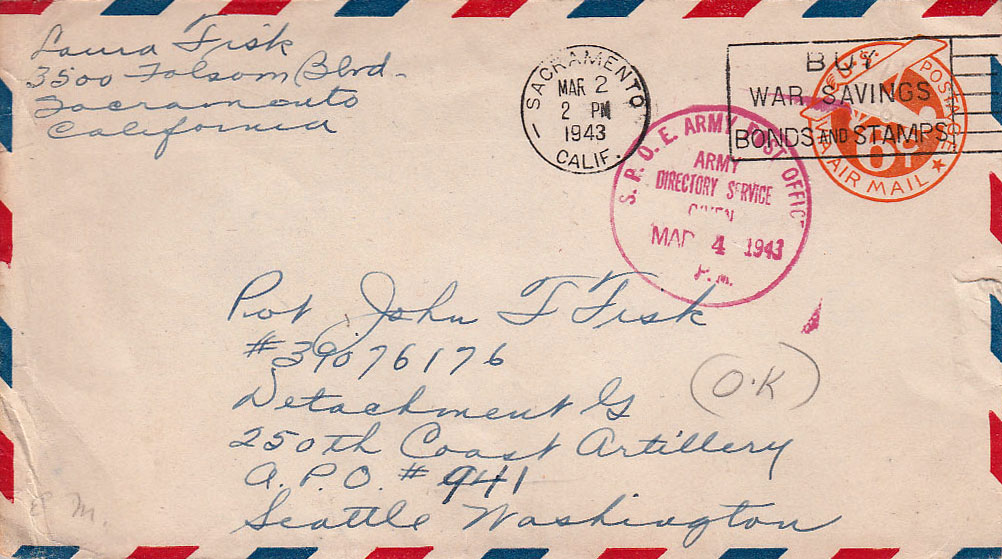 Laura Fisk
3500 Folsom Blvd-
Sacramento
California
SACRAMENTO
MAR 2
2 PM
1943
CALIF.
BUY
WAR SAVINGS
BONDS AND STAMPS
U.S. POSTAGE
6¢
VIA AIR MAIL
S. P. O. E. ARMY POST OFFICE
ARMY
DIRECTORY SERVICE
GIVEN
MAR 4 1943
P.M.
Pvt John T Fisk
#39076176
Detachment G
(O.K)
250th Coast Artillery
A.P.O. #941
Seattle Washington